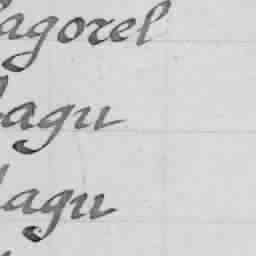 agorel
agu
agu